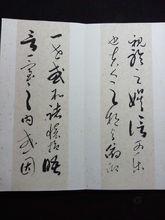 視聽之娛信可樂
也夫人之相與俯仰
一世或取諸懷抱悟
言一室之內或因